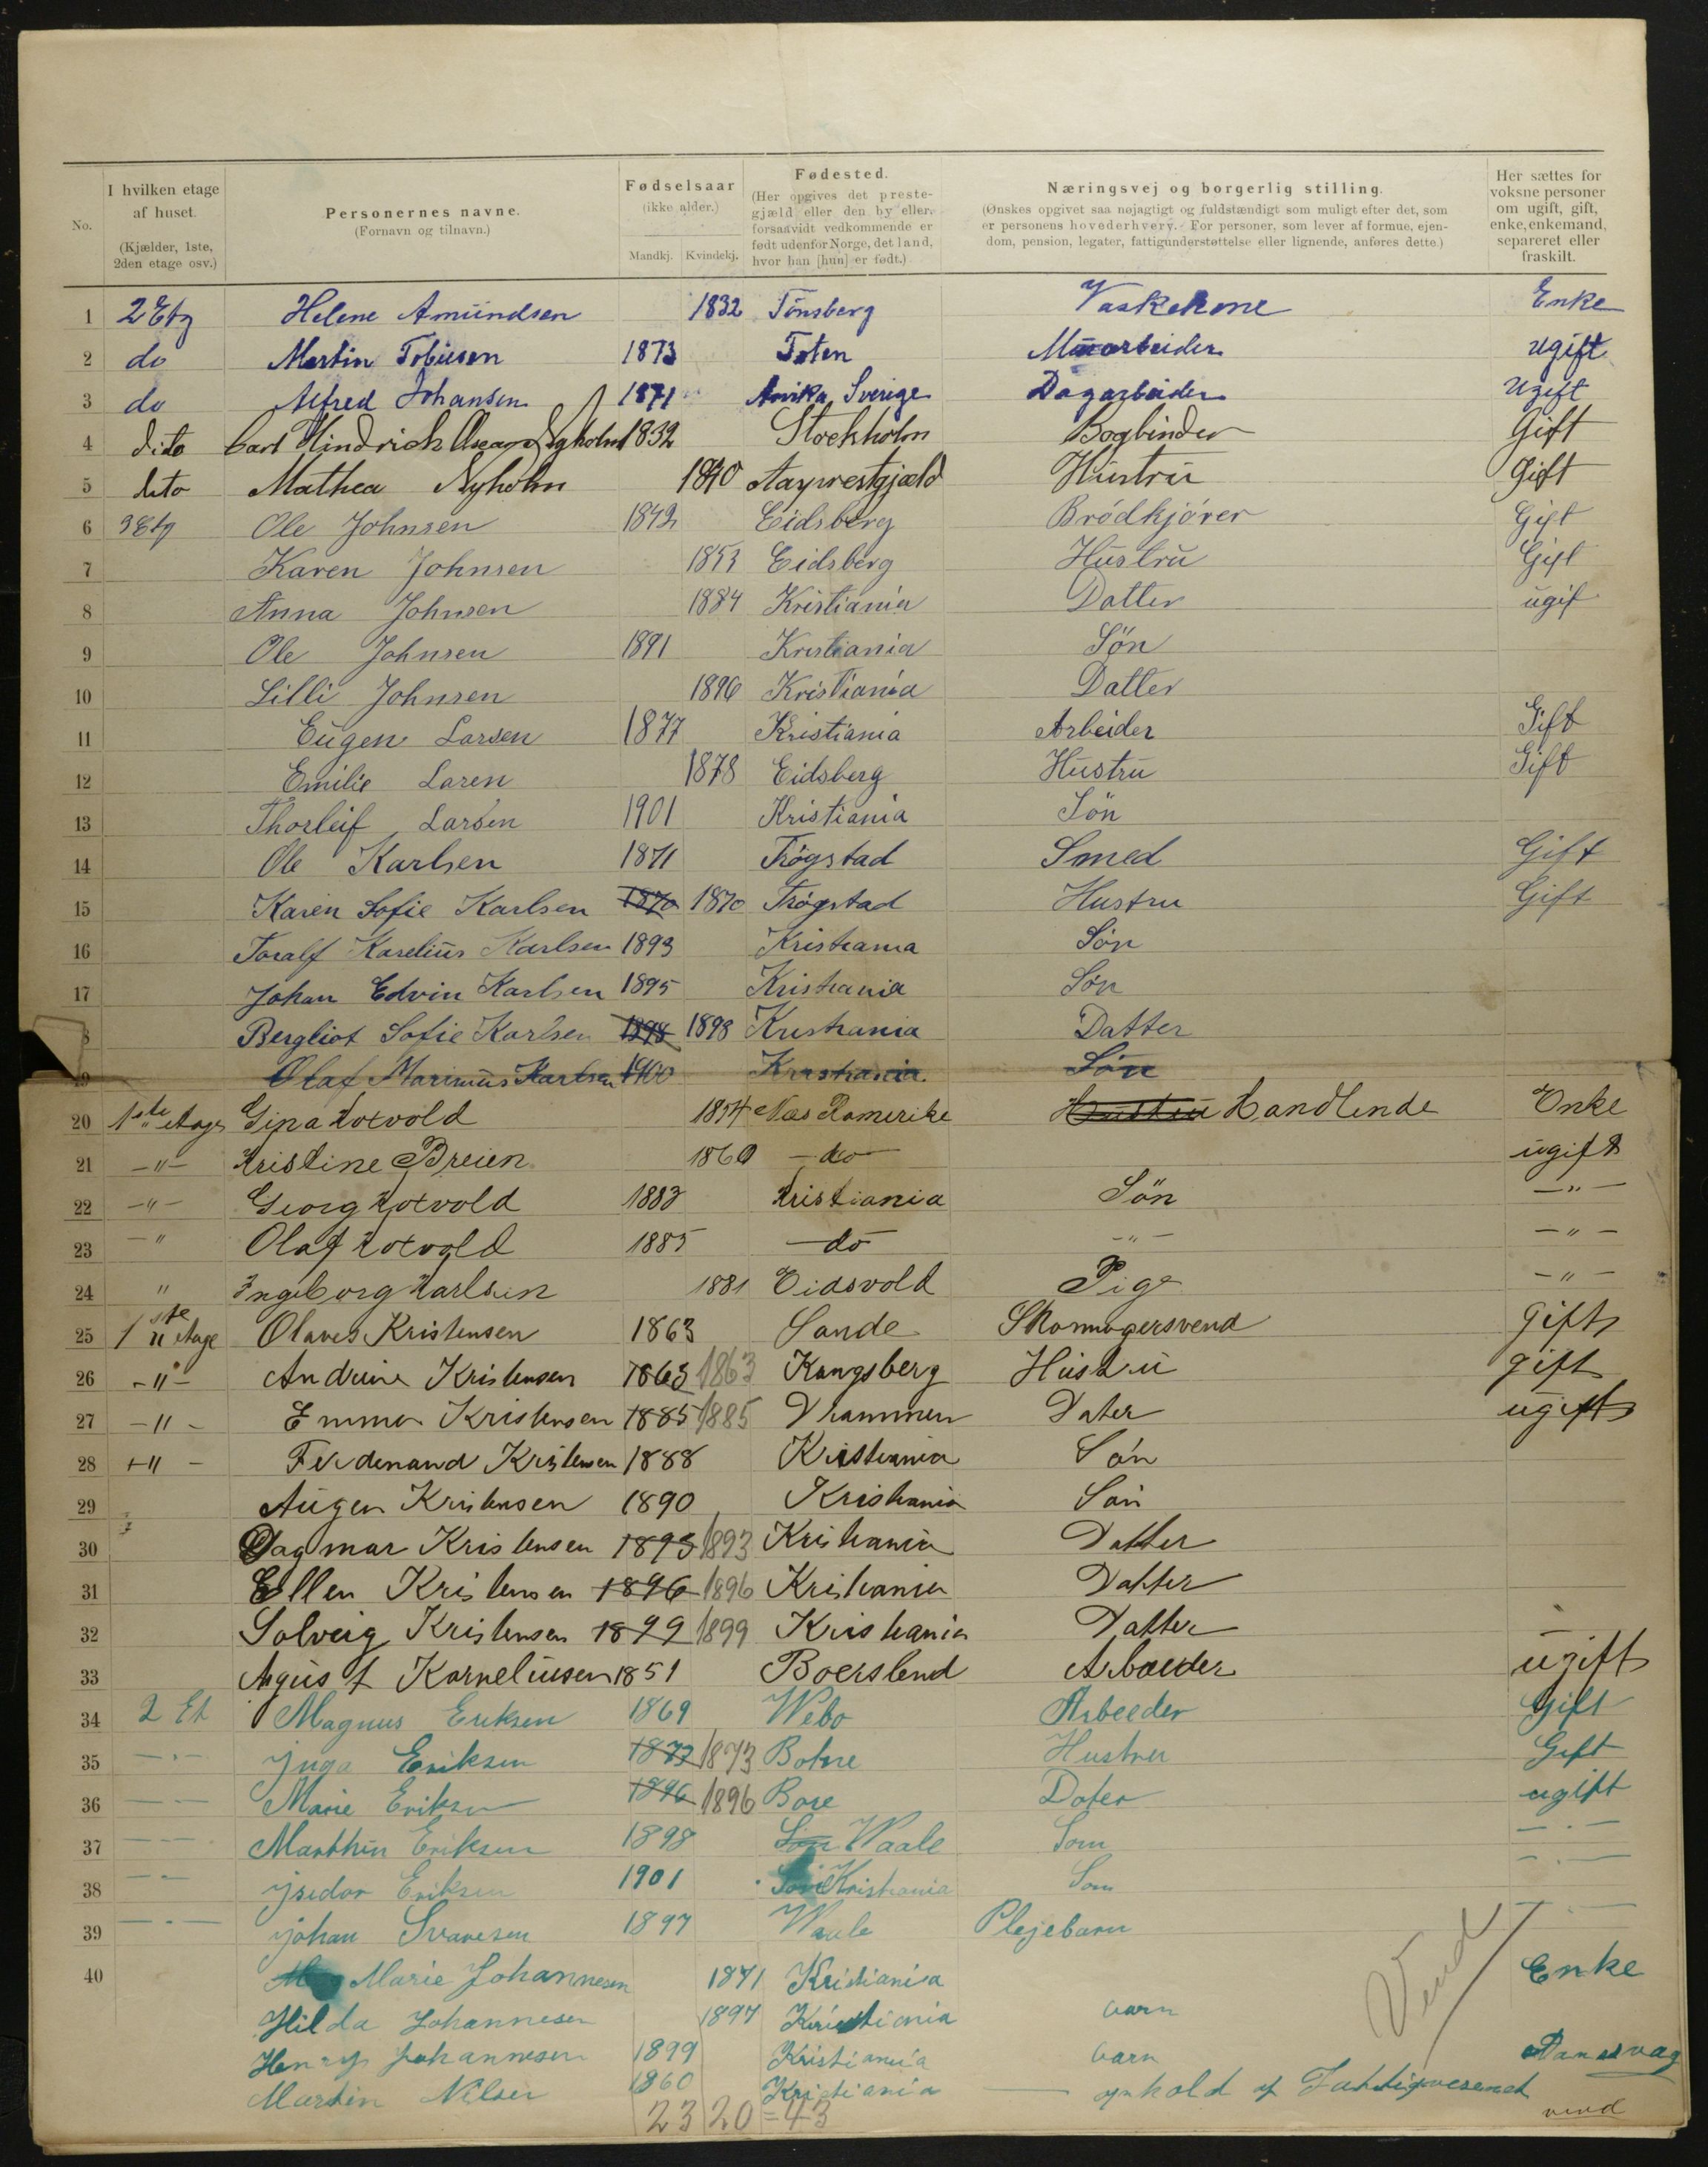 No.
I hvilken etage af huset. (Kjælder, 1ste, 2den etage osv.)
Personernes navne. (Fornavn og tilnavn.)
Fødselsaar (ikke alder.) Mandkj. Kvindekj.
Fødested. (Her opgives det prestegjæld eller den by eller, forsaavidt vedkommende er født udenfor Norge, det land, hvor han [hun] er født.)
Næringsvej og borgerlig stilling. (Ønskes opgivet saa nøjagtigt og fuldstændigt som muligt efter det, som er personens hovederhverv. For personer, som lever af formue, ejendom, pension, legater, fattigunderstøttelse eller lignende, anføres dette.)
Her sættes for voksne personer om ugift, gift, enke, enkemand, separeret eller fraskilt.
1 2 Etg Helene Amundsen 1832 Tønsberg Vaskekone Enke
2 do Martin Tobiesen 1873 Toten Murarbeider ugift
3 do Alfred Johansen 1871 Arvika Sverige Dagarbeider Ugift
4 dito Carl Hindrich Nyholm 1832 Stockholm Bogbinder Gift
5 dito Mathea Nyholm 1840 Hustru Gift
6 3 Etg Ole Johnsen 1842 Eidsberg Brødkjører Gift
7 Karen Johnsen 1853 Eidsberg Hustru Gift
8 Anna Johnsen 1884 Kristiania Datter ugif
9 Ole Johnsen 1891 Kristiania Søn
10 Lilli Johnsen 1896 Kristiania Datter
11 Eugen Larsen 1877 Kristiania Arbeider Gift
12 Emilie Laren 1878 Eidsberg Hustru Gift
13 Thorleif Larsen 1901 Kristiania Søn
14 Ole Karlsen 1871 Trøgstad Smed Gift
15 Karen Sofie Karlsen 1870 1870 Trøgstad Hustru Gift
16 Toralf Karelius Karlsen 1893 Kristiania Søn
17 Johan Edvin Karlsen 1895 Kristiania Søn
8 Bergliot Sofie Karlsen 1898 1898 Kristiania Datter
19 Olaf Marinius Karlsen 1900 Kristiania Søn
20 1ste etage Gina Rotvold 1854 Næs Romerike Hustru Handlende Enke
21 -"- Kristine Breien 1860 - do - ugift
22 -"- Georg Rotvold 1883 Kristiania Søn -"-
23 -" Olaf Rotvold 1885 - do - -"- -"-
24 " Ingeborg Karlsen 1881 Eidsvold Pige -"-
25 1ste etage Olaves Kristensen 1863 Sande Skomagersvend Gift
26 -"- Andrine Kristensen 1863 1863 Kongsberg Hustru gift
27 -"- Emma Kristensen 1885 1885 Drammen Dater ugift
28 -"- Ferdenand Kristensen 1888 Kristiania Søn
29 Augen Kristensen 1890 Kristiania Søn
30 Dagmar Kristensen 1893 1893 Kristiania Datter
31 Ellen Kristensen 1896 1896 Kristiania Datter
32 Solveig Kristensen 1899 1899 Kristiania Datter
33 Agust Korneliusen 1851 Boerslend Arbaeder ugift
34 2 Et Magnus Eriksen 1869 Webo Arbeeder Gift
35 - " - Ynga Eriksen 1873 1873 Botne Hustru Gift
36 - - Marie Eriksen 1896 1896 Bore Doter ugift
37 - - Marthin Eriksen 1898 Søn Waale Son - " -
38 - - Ysedor Eriksen 1901 Kristiania Son - " -
39 - " - Johan Svanesen 1897 Waale Plejebarn - " -
40 Marie Johannesen 1871 Kristiania Enke
Hilda Johannesen 1897 Kristiania barn
Henry Johannesen 1899 Kristiania barn
Martin Nilsen 1860 Kristiania - ophold af Fattigvæsenet
23 20 = 43
Vend
vend